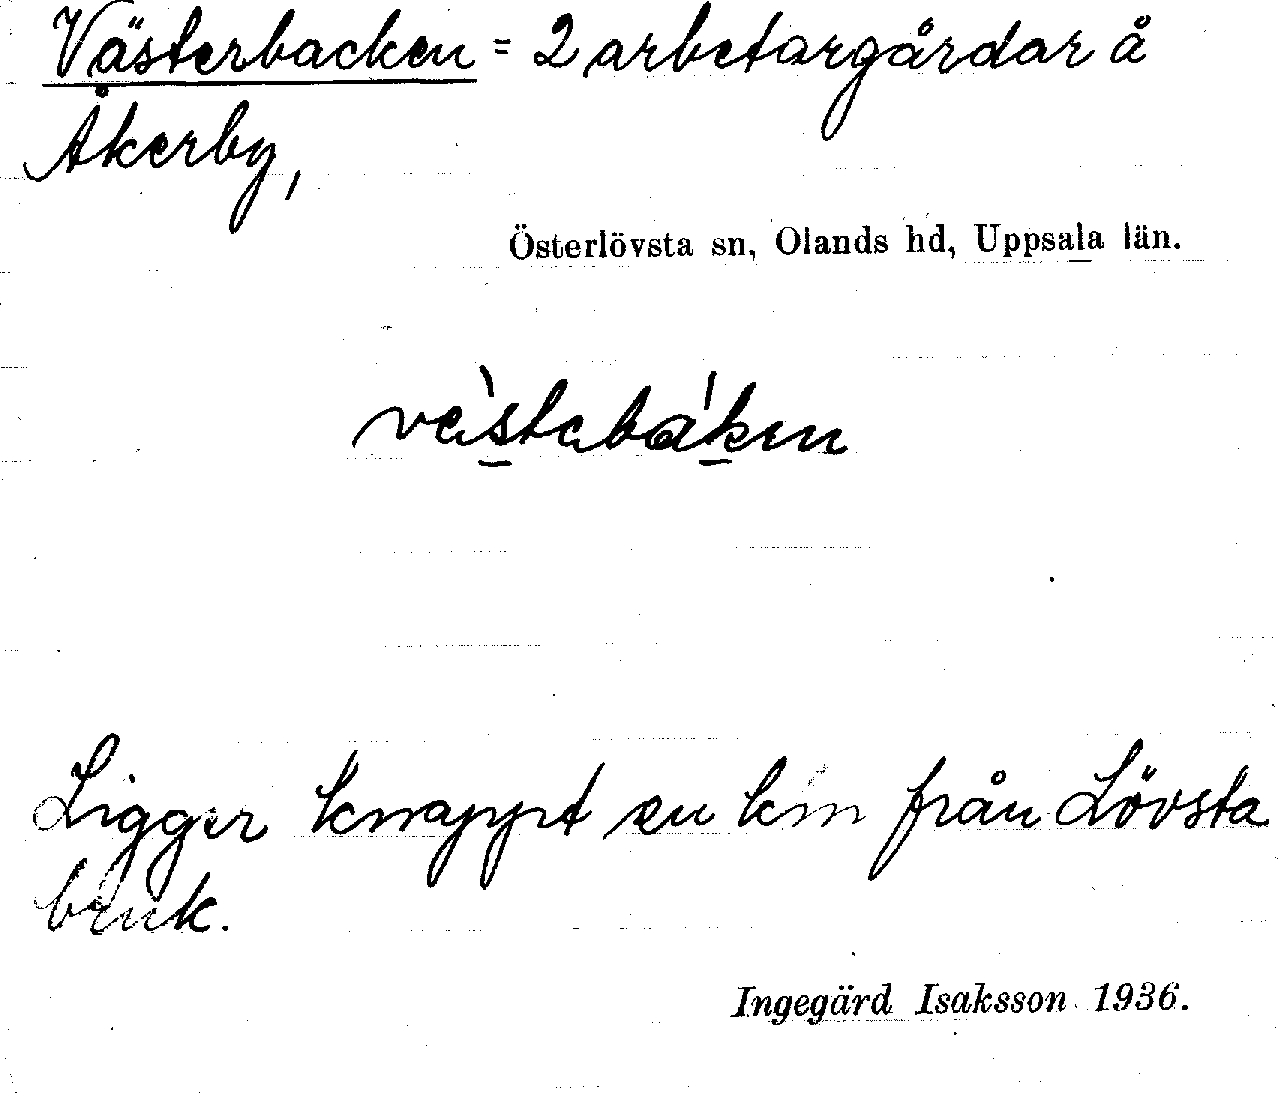 Västerbacken = 2 arbetargårdar å
Åkerby,
Österlövsta sn, Olands hd, Uppsala län.
vè̱stabá̱ken
Ligger knappt en km från Lövsta
bruk.
Ingegärd Isaksson 1936.